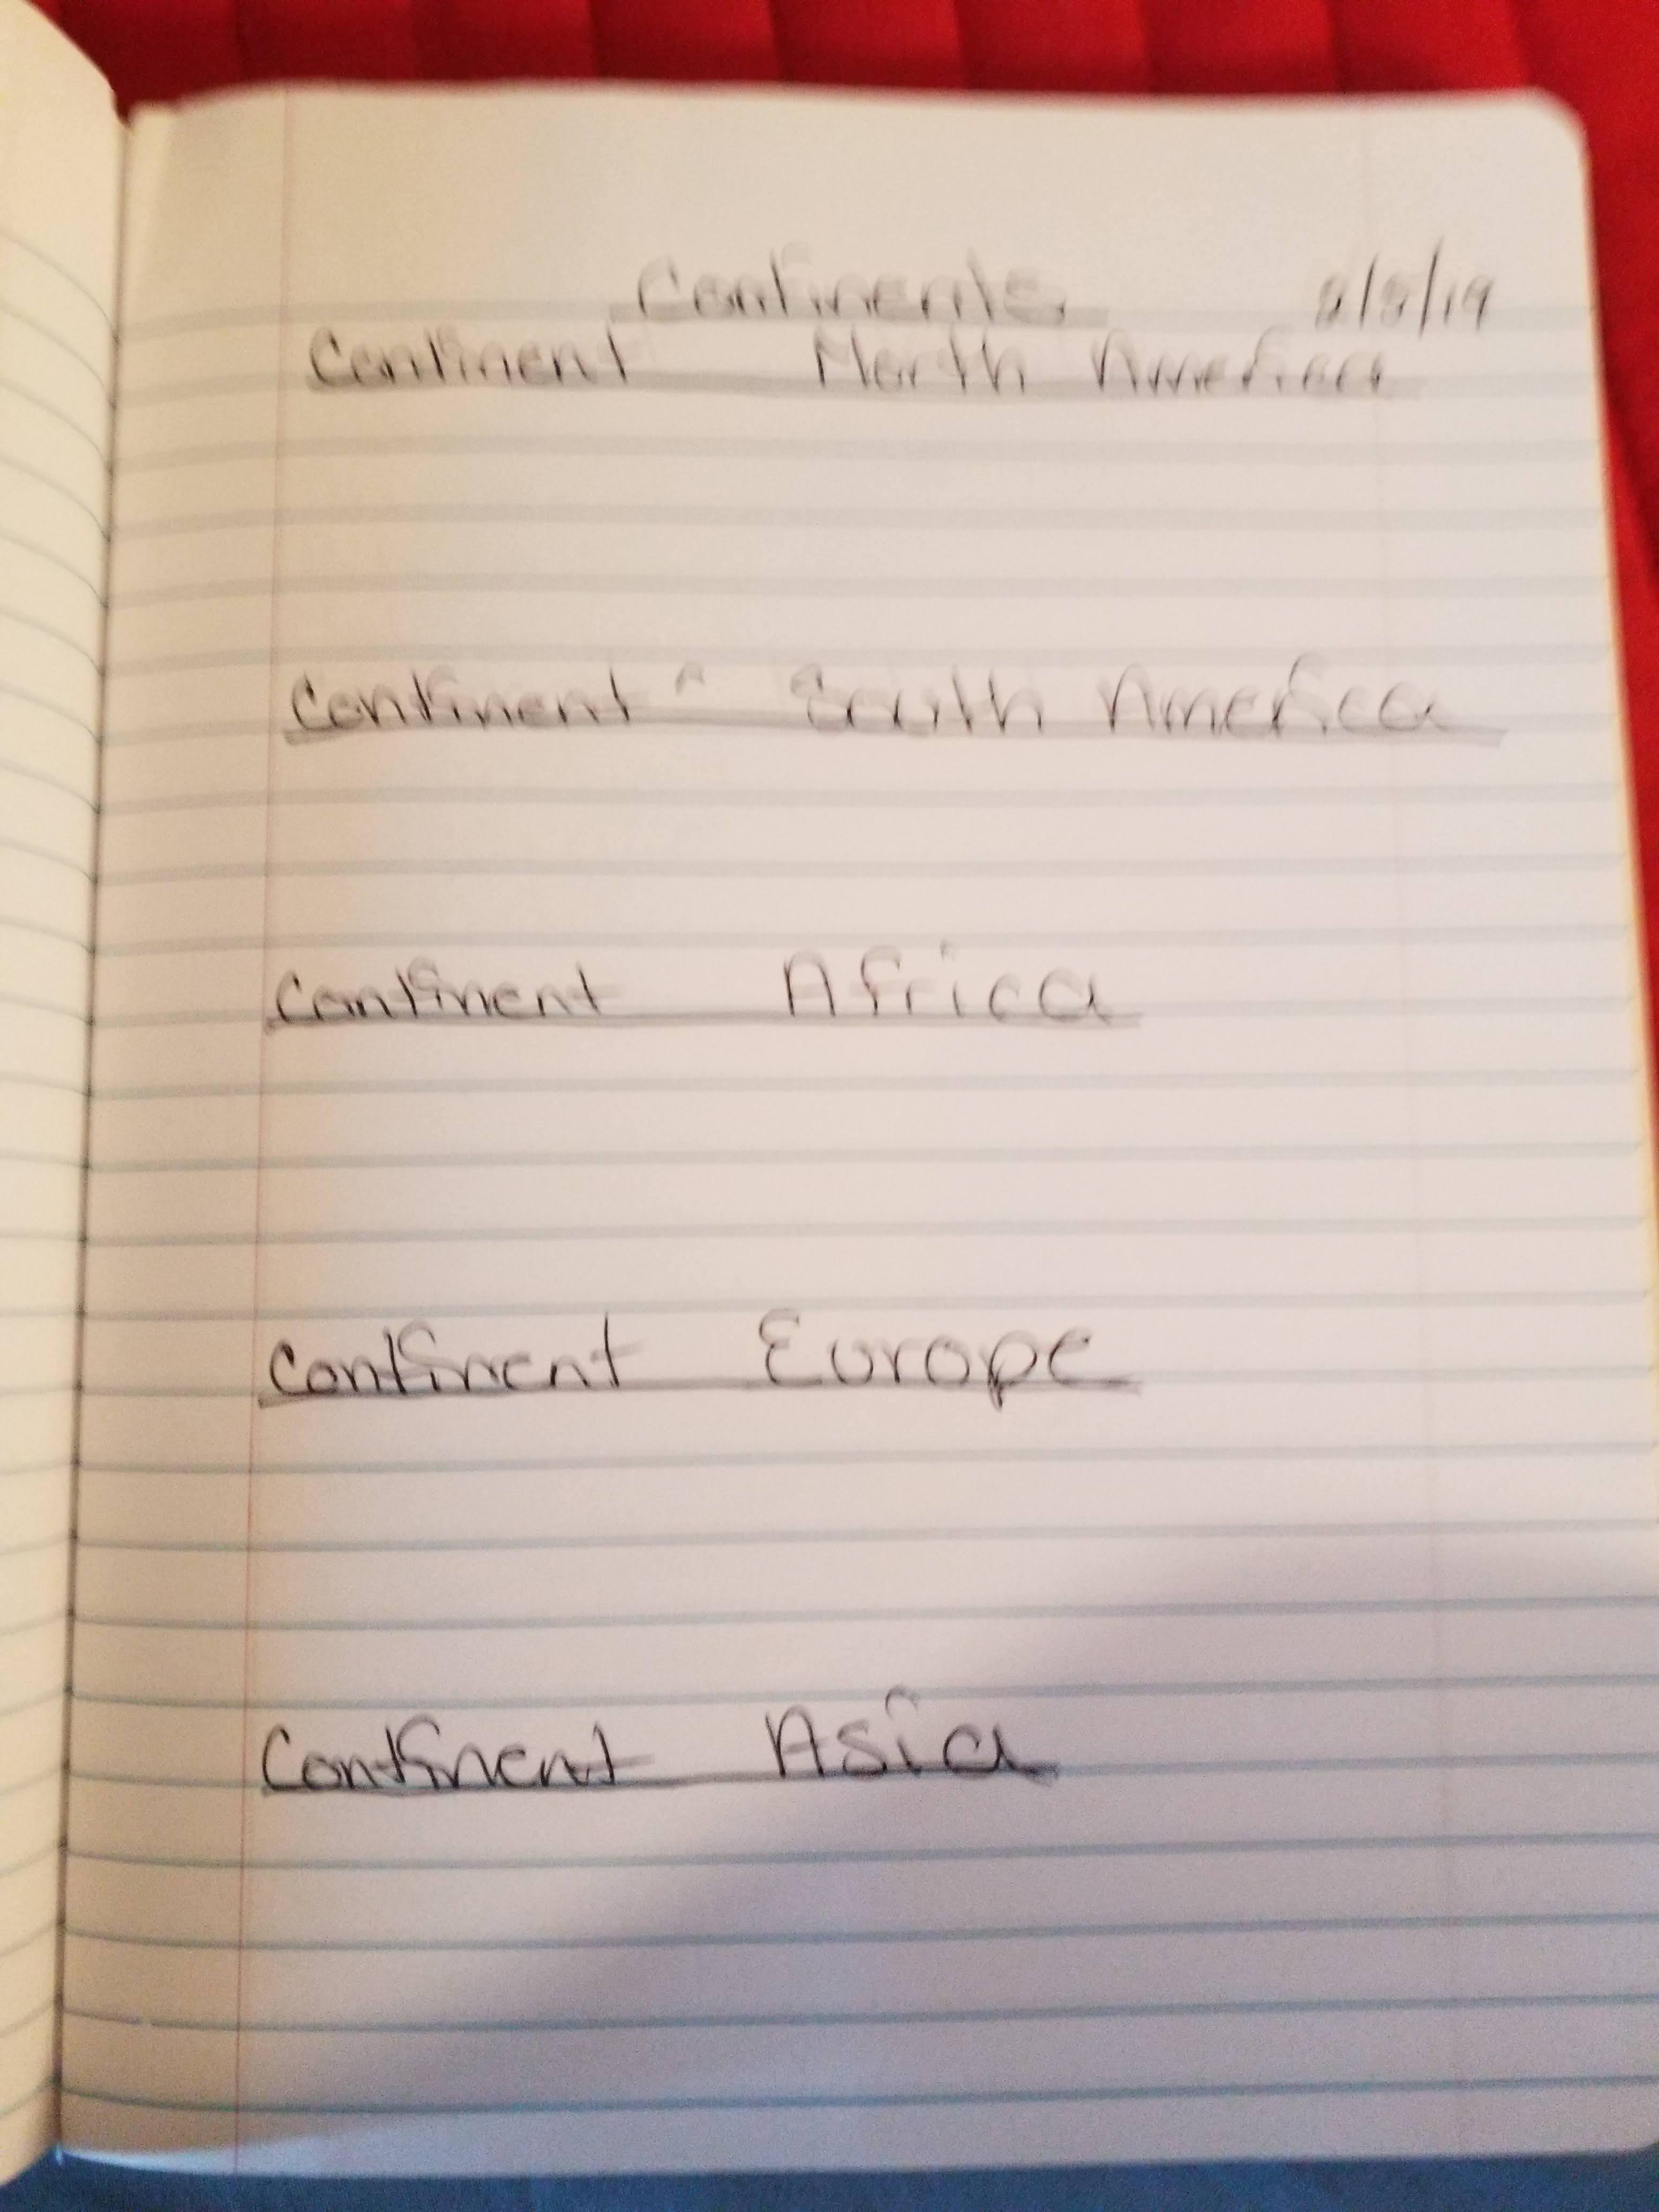 Continents 8/8/19
Continent North America
Continent South America
Continent Africa
Continent Europe
Continent Asia